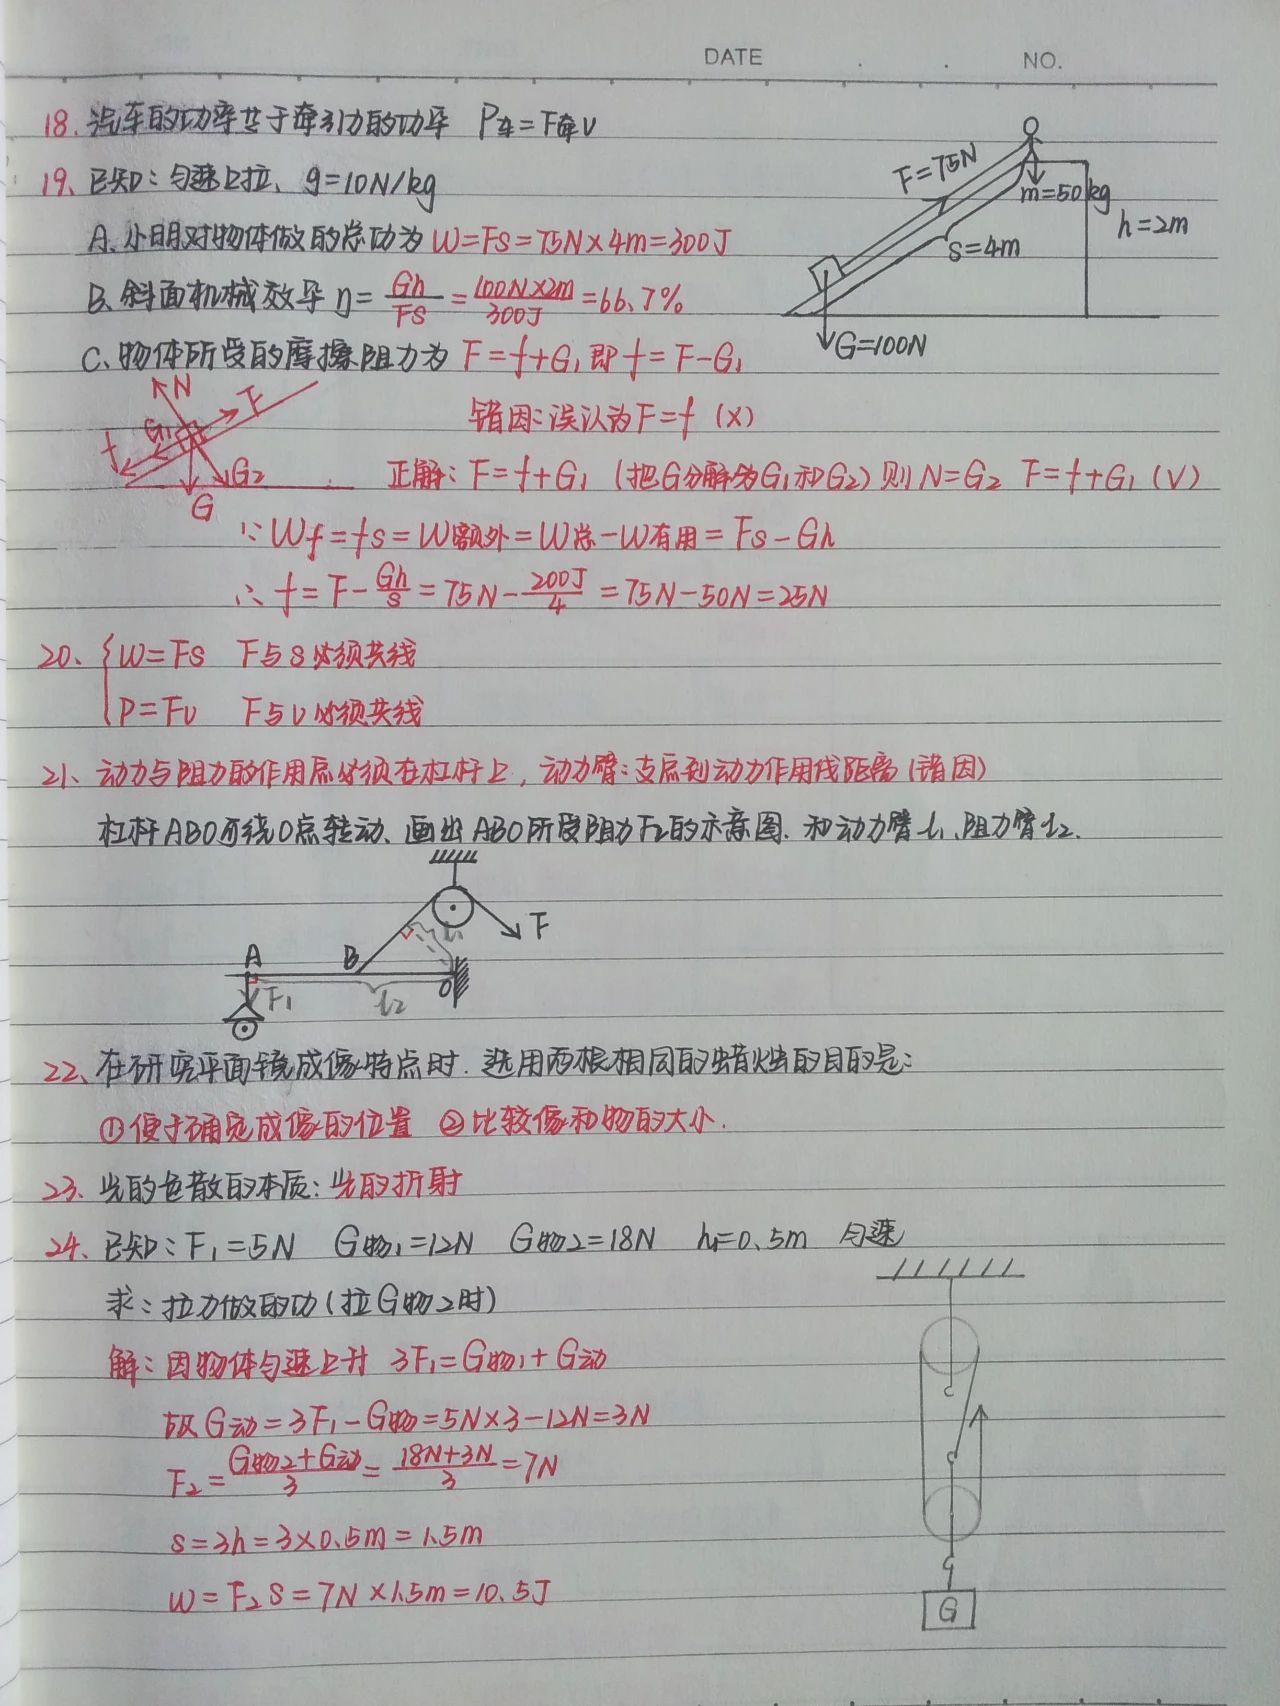 DATE . . NO.
18. 汽车的功率等于牵引力的功率 P车=F牵v
19. 已知: 匀速上拉, g=10N/kg
A. 小明对物体做的总功为 W=Fs=75N×4m=300J
B. 斜面机械效率 η=Gh/Fs=100N×2m/300J=66.7%
C. 物体所受的摩擦阻力为 F=f+G₁ 即 f=F-G₁
F=75N
m=50kg
h=2m
s=4m
G=100N
错因: 误认为F=f (×)
N
F
G₁
f
G₂
G
正解: F=f+G₁ (把G分解为G₁和G₂) 则N=G₂ F=f+G₁ (√)
∵Wf=fs=W额外=W总-W有用=Fs-Gh
∴f=F-Gh/s=75N-200J/4=75N-50N=25N
20. { W=Fs F与s必须共线
P=Fv F与v必须共线
21. 动力与阻力的作用点必须在杠杆上, 动力臂: 支点到动力作用线距离 (错因)
杠杆ABO可绕O点转动, 画出ABO所受阻力F₂的示意图. 和动力臂l₁、阻力臂l₂.
F
l₁
A B
F₁ l₂ O
22. 在研究平面镜成像特点时. 选用两根相同的蜡烛的目的是:
①便于确定成像的位置 ②比较像和物的大小.
23. 光的色散的本质: 光的折射
24. 已知: F₁=5N G物₁=12N G物2=18N h=0.5m 匀速
求: 拉力做的功(拉G物2时)
解: 因物体匀速上升 3F₁=G物₁+G动
故G动=3F₁-G物=5N×3-12N=3N
F₂=G物2+G动/3=18N+3N/3=7N
s=3h=3×0.5m=1.5m
W=F₂s=7N×1.5m=10.5J
G